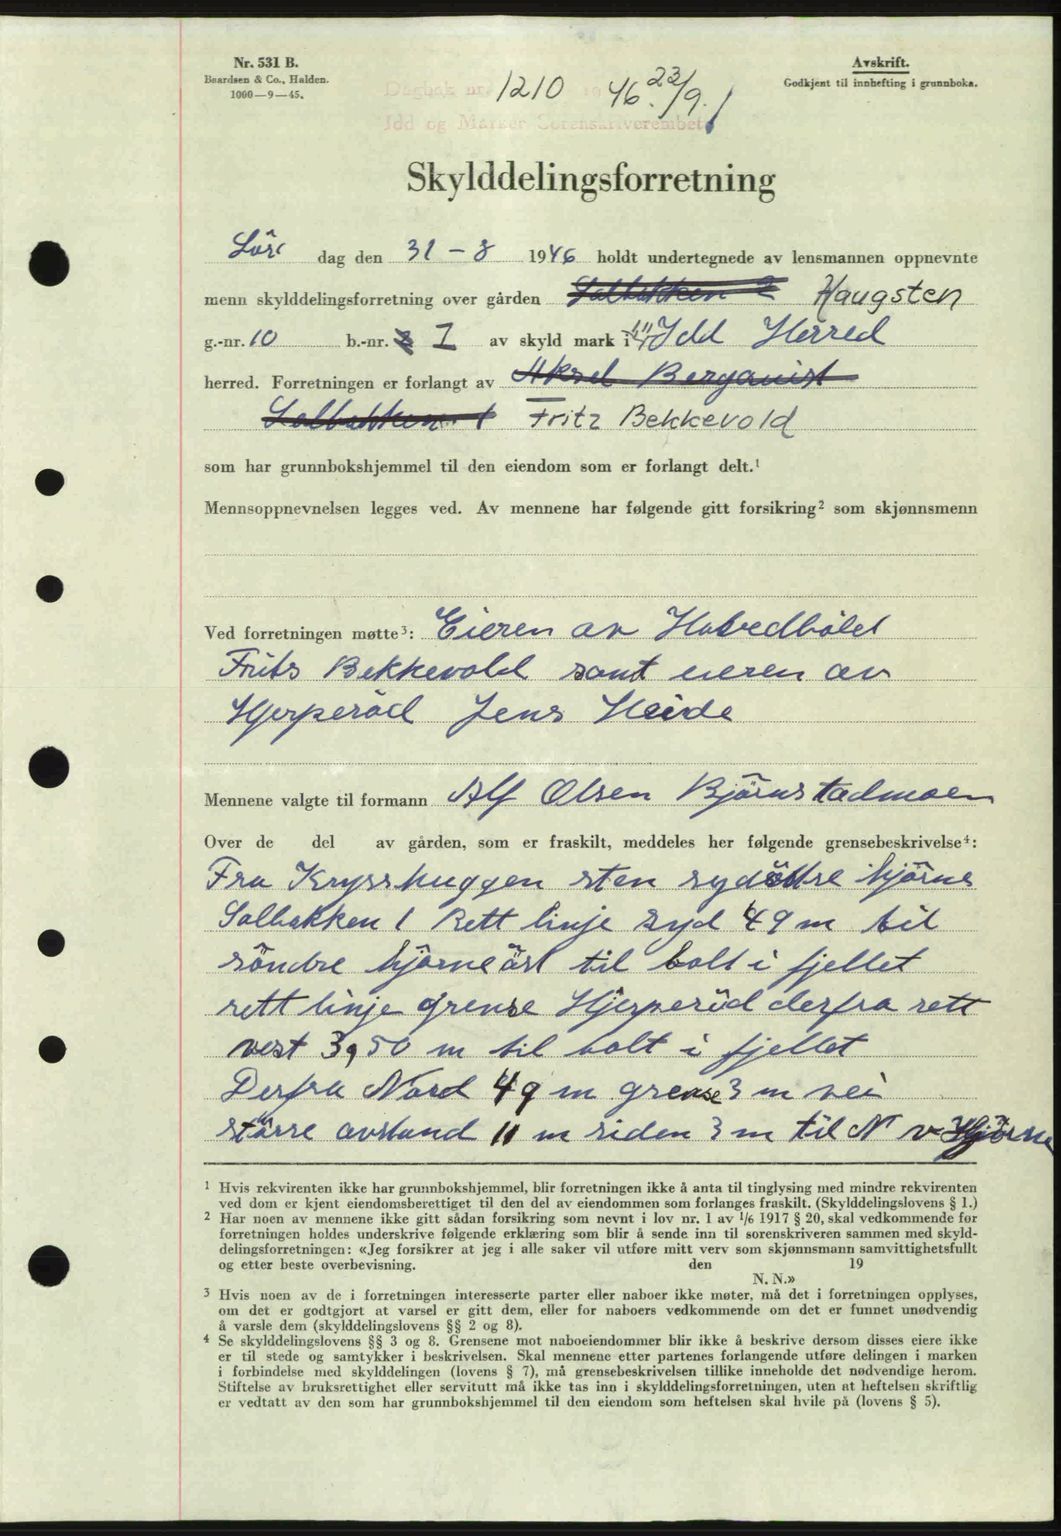 Nr. 531 B.
Baardsen & Co., Halden.
1000—9—45.
Avskrift.
Godkjent til innhefting i grunnboka.
Dagbok nr. 1210 19 46. 23/9.
Idd og Marker Sorenskriverembete
Skylddelingsforretning
Lör dag den 31 – 8 1946 holdt undertegnede av lensmannen oppnevnte
menn skylddelingsforretning over gården Solbakken 2 Haugsten
g.-nr. 10 b.-nr. 2 I av skyld mark i Idd Herred
herred. Forretningen er forlangt av Aksel Berganist
Solbakken 1 Fritz Bekkevold
som har grunnbokshjemmel til den eiendom som er forlangt delt.¹
Mennsoppnevnelsen legges ved. Av mennene har følgende gitt forsikring² som skjønnsmenn
Ved forretningen møtte³: Eieren av
Frits Bekkevold samt eieren av
Hjerperöd Jens Heide
Mennene valgte til formann Alf Olsen Björnstadmoen
Over de del av gården, som er fraskilt, meddeles her følgende grensebeskrivelse⁴:
Fra Krysshuggen sten sydöstre hjörne
Solbakken 1 Rett linje syd 49 m til
söndre hjörne öst til bolt i fjellet
rett linje grense Hjerperöd derfra rett
vest 39,50 m til bolt i fjellet
Derfra Nord 49 m grense 3 m vei
större avstand 11 m siden 3 m til N v Hjörne
¹ Hvis rekvirenten ikke har grunnbokshjemmel, blir forretningen ikke å anta til tinglysing med mindre rekvirenten
ved dom er kjent eiendomsberettiget til den del av eiendommen som forlanges fraskilt. (Skylddelingslovens § 1.)
² Har noen av mennene ikke gitt sådan forsikring som nevnt i lov nr. 1 av 1/6 1917 § 20, skal vedkommende før
forretningen holdes underskrive følgende erklæring som blir å sende inn til sorenskriveren sammen med skyld-
delingsforretningen: «Jeg forsikrer at jeg i alle saker vil utføre mitt verv som skjønnsmann samvittighetsfullt
og etter beste overbevisning. den 19
N. N.»
³ Hvis noen av de i forretningen interesserte parter eller naboer ikke møter, må det i forretningen opplyses,
om det er godtgjort at varsel er gitt dem, eller for naboers vedkommende om det er funnet unødvendig
å varsle dem (skylddelingslovens §§ 2 og 8).
⁴ Se skylddelingslovens §§ 3 og 8. Grensene mot naboeiendommer blir ikke å beskrive dersom disses eiere ikke
er til stede og samtykker i beskrivelsen. Skal mennene etter partenes forlangende utføre delingen i marken
i forbindelse med skylddelingen (lovens § 7), må grensebeskrivelsen tillike inneholde det nødvendige herom.
Stiftelse av bruksrettighet eller servitutt må ikke tas inn i skylddelingsforretningen, uten at heftelsen skriftlig
er vedtatt av den som har grunnbokshjemmel til den eiendom som heftelsen skal hvile på (lovens § 5).